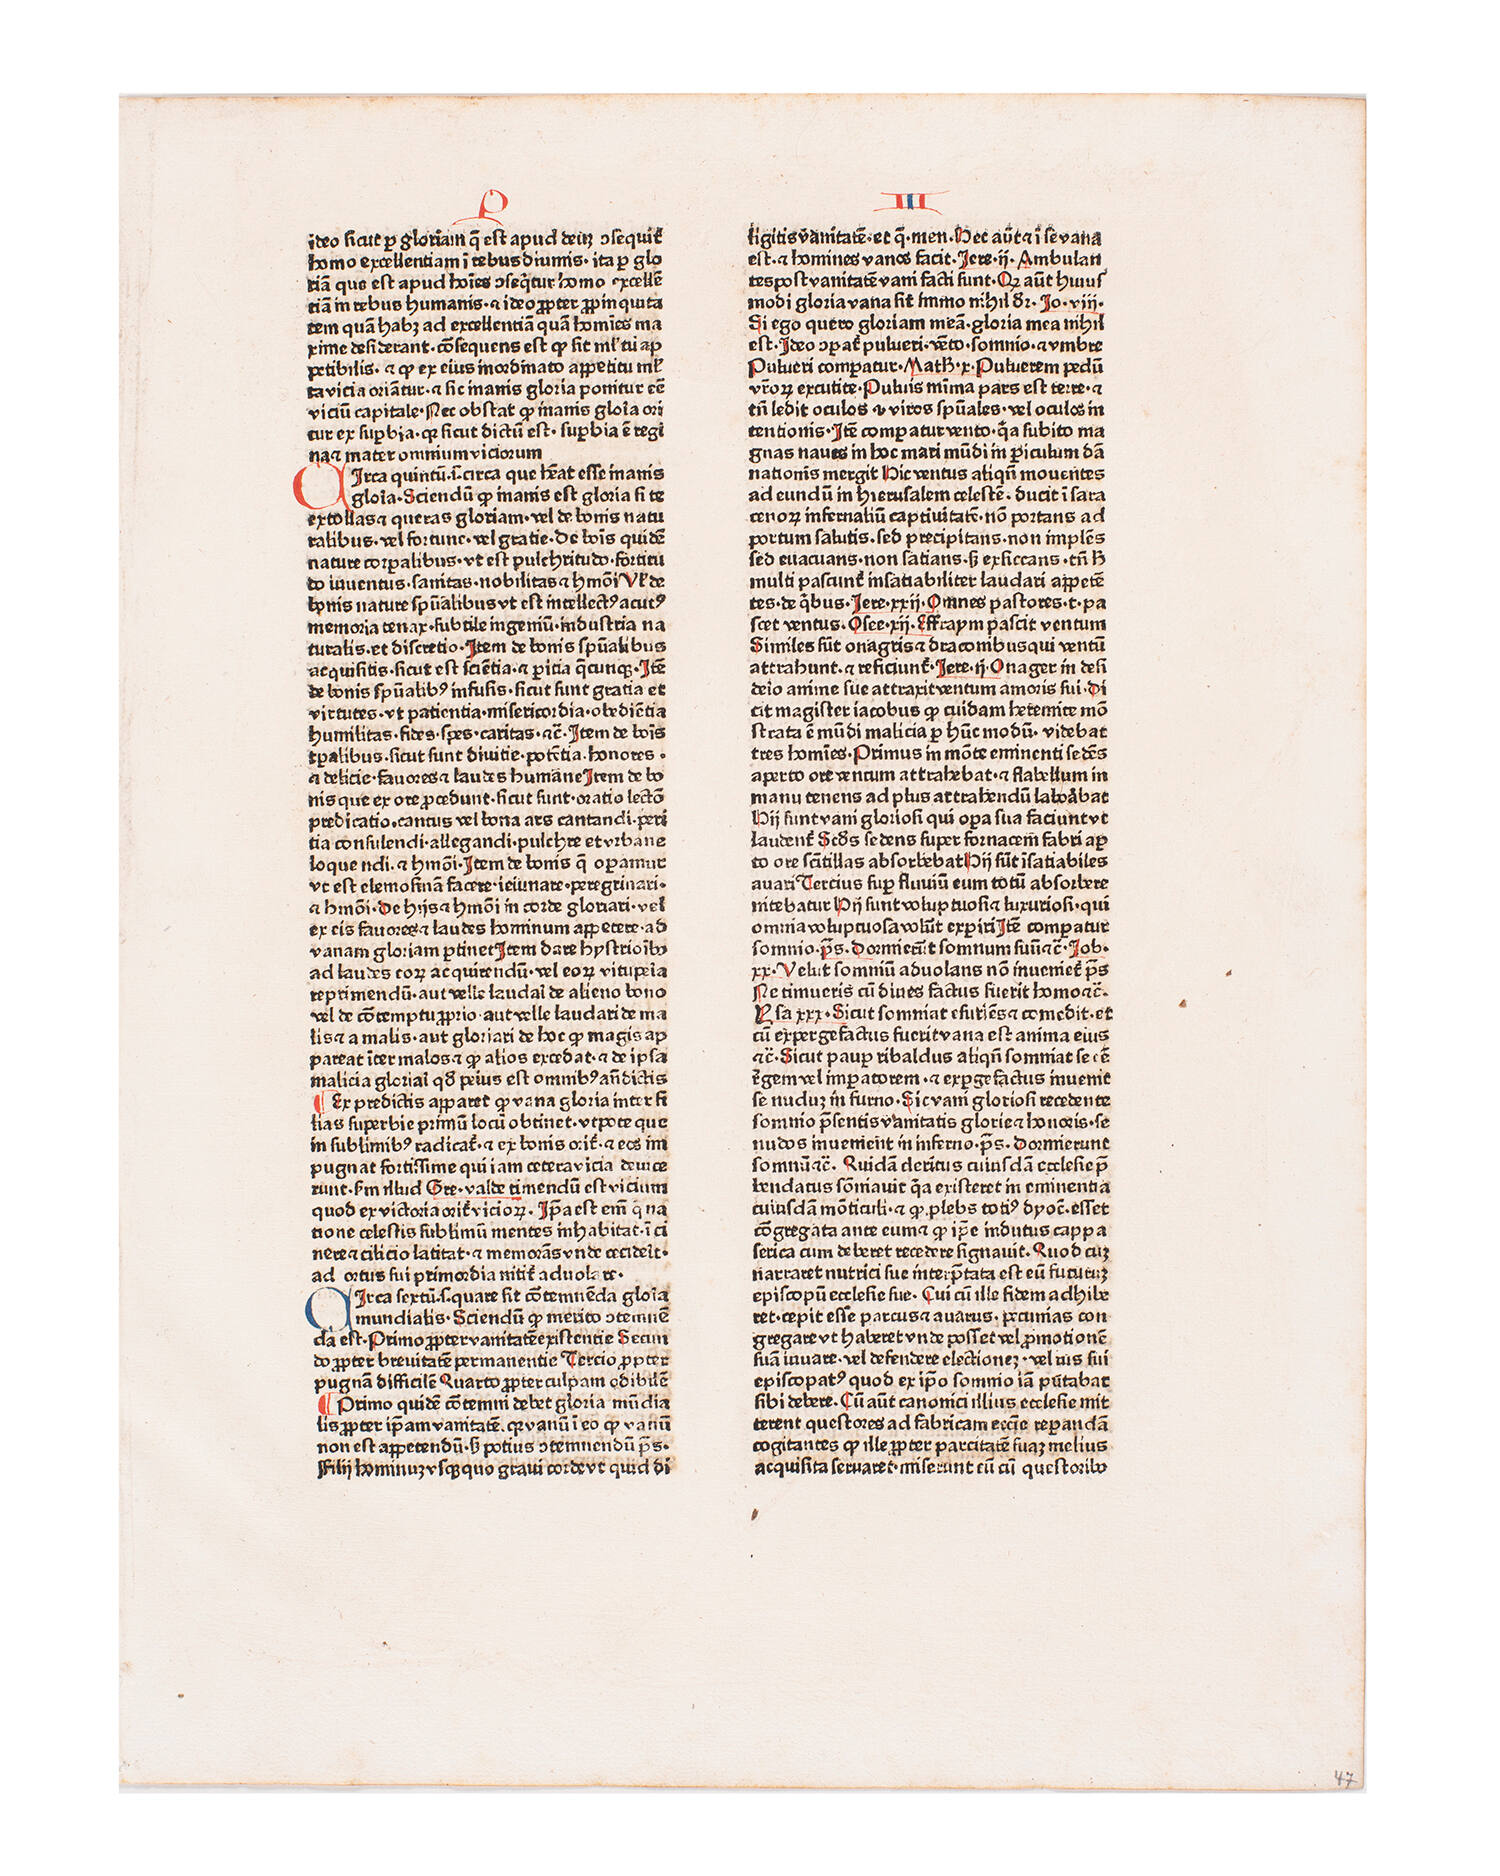 P
III
ideo sicut ꝑ gloriam q̄ est apud deuꝫ ɔsequit̄
homo excellentiam ī rebus diuinis · ita ꝑ glo
riā que est apud hoīes ɔseq̄tur homo excellē
tiā in rebus humanis · ⁊ ideo ꝓpter ꝓpinquita
tem quā habꝫ ad excellentiā quā homīes ma
xime desiderant · cōsequens est ꝙ sit ml̄tū ap
petibilis · ⁊ ꝙ ex eius inordinato appetitu ml̄
ta vicia oriātur · ⁊ sic inanis gloria ponitur eē
viciū capitale · Nec obstat ꝙ inanis gloīa ori
tur ex suꝑbia · qꝛ sicut dictū est · suꝑbia ē regi
na ⁊ mater omnium viciorum
Circa quintū · i · circa que hēat esse inanis
gloīa · Sciendū ꝙ inanis est gloria si te
extollas ⁊ queras gloriam · vel de bonis natu
ralibus · vel fortune · vel gratie · De boīs quidē
nature corꝑalibus · vt est pulchritudo · fortitu
do iuuentus · sanitas · nobilitas ⁊ hmōi Vl̄ de
bonis nature spūalibus vt est intellectꝰ acutꝰ
memoria tenax · subtile ingeniū · industria na
turalis · et discretio · Item de bonis spūalibus
acquisitis · sicut est sciētia · ⁊ ꝑitia q̄cunqꝫ · Itē
de bonis spūalibꝰ infusis · sicut sunt gratia et
virtutes · vt patientia · misericordia · obediētia
humilitas · fides · spes · caritas · ⁊c̄ · Item de boīs
tꝑalibus · sicut sunt diuitie · potētia · honores ·
⁊ delicie · fauores ⁊ laudes humāne Item de bo
nis que ex ore ꝓcedunt · sicut sunt · oratio lectō
predicatio · cantus vel bona ars cantandi · peri
tia consulendi · allegandi · pulchre et vrbane
loque ndi · ⁊ hmōi · Item de bonis q̄ oꝑamur
vt est elemosinā facere · ieiunare · peregrinari ·
⁊ hmōi · De hijs ⁊ hmōi in corde gloriari · vel
ex eis fauores ⁊ laudes hominum appetere · ad
vanam gloriam ꝑtinet Item dare hystrioībꝰ
ad laudes eoꝝ acquirendū · vel eoꝝ vitupeīa
reprimendū · aut velle laudaī de alieno bono
vel de cōtemptu ꝓprio · aut velle laudari de ma
lis ⁊ a malis · aut gloriari de hoc ꝙ magis ap
pareat īter malos ⁊ ꝙ alios excedat · ⁊ de ipsa
malicia gloriaī qd̄ peius est omnibꝰ an̄dictis
¶ Ex predictis apparet ꝙ vana gloria inter fi
lias superbie primū locū obtinet · vtpote que
in sublimibꝰ radicat̄ · ⁊ ex bonis orit̄ · ⁊ eos im
pugnat fortissime qui iam cetera vicia deuice
runt · scd̄m illud Gre · valde timendū est vicium
quod ex victoria orit̄ vicioꝝ · Ip̄a est em̄ q̄ na
tione celestis sublimū mentes inhabitat · ī ci
nere ⁊ cilicio latitat · ⁊ memorās vnde ceciderit ·
ad ortus sui primordia nitit̄ aduolare ·
Circa sextū · s · quare sit cōtemnēda gloīa
mundialis · Sciendū ꝙ merito ɔtemnē
da est · Primo ꝓpter vanitatē existentie Secun
do ꝓpter breuitatē permanentie Tercio ꝓpter
pugnā difficilē Quarto ꝓpter culpam odibilē
¶ Primo quidē cōtemni debet gloria mūdia
lis ꝓpter ip̄am vanitatē · qꝛ vanū ī eo ꝙ vanū
non est appetendū · sꝫ potius ɔtemnendū p̄s ·
Filij hominuꝫ vsqꝫquo graui corde vt quid di
ligitis vanitatē · et q̄ · men · Hec aūt ⁊ ī se vana
est · ⁊ homines vanos facit · Jere · ij · Ambulan
tes post vanitatē vani facti sunt · Qꝛ aūt huius
modi gloria vana sit immo nihil dr̄ · Io · viij ·
Si ego quero gloriam meā · gloria mea nihil
est · Ideo ɔꝑat̄ pulueri · vēto · somnio · ⁊ vmbre
Pulueri comparatur · Math · x · Puluerem pedū
vr̄oꝝ excutite · Puluis minima pars est terre · ⁊
tn̄ ledit oculos ⁊ viros spūales · vel oculos in
tentionis · Itē comꝑatur vento · q̄a subito ma
gnas naues in hoc mari mūdi in ꝑiculum dā
nationis mergit Hic ventus aliqn̄ mouentes
ad eundū in hierusalem celestē · ducit ī sara
cenoꝝ infernaliū captiuitatē · nō portans ad
portum salutis · sed precipitans · non implēs
sed euacuans · non satians · sꝫ exsiccans · tn̄ h̄
multi pascunt̄ insatiabiliter laudari appetē
tes · de q̄bus · Jere · xxij · Omnes pastores · t · pa
scet ventus · Osee · xij · Effraym pascit ventum
Similes sūt onagris ⁊ draconibus qui ventū
attrahunt · ⁊ reficiunt̄ · Jere · ij · Onager in desi
deīo anime sue attraxit ventum amoris sui · Di
cit magister iacobus ꝙ cuidam heremite mō
strata ē mūdi malicia ꝑ hūc modū · videbat
tres homīes · Primus in mōte eminenti sedēs
aperto ore ventum attrahebat · ⁊ flabellum in
manu tenens ad plus attrahendū laborabat
Hij sunt vani gloriosi qui oꝑa sua faciunt vt
laudent̄ Scd̄s sedens super fornacem fabri aꝑ
to ore scītillas absorbebat Hij sūt īsatiabiles
auari Tercius suꝑ fluuiū eum totū absorbere
nitebatur Hij sunt voluptuosi ⁊ luxuriosi · qui
omnia voluptuosa volūt experiri Itē comꝑatur
somnio · p̄s · Dormierūt somnum suū ⁊c̄ · Job ·
xx · Velut somniū aduolans nō inueniet̄ p̄s
Ne timueris cū diues factus fuerit homo ⁊c̄ ·
Ysa xxx · Sicut somniat esuriēs ⁊ comedit · et
cū expergefactus fuerit vana est anima eius
⁊c̄ · Sicut pauꝑ ribaldus aliqn̄ somniat se eē
regem vel imꝑatorem · ⁊ exꝑgefactus inuenit
se nuduꝫ in furno · Sic vani gloriosi recedente
somnio p̄sentis vanitatis glorie ⁊ honoris · se
nudos inuenient in inferno · p̄s · Dormierunt
somnū ⁊c̄ · Quidā clericus cuiusdā ecclesie p̄
bendatus sōniauit q̄a existeret in eminentia
cuiusdā mōticuli · ⁊ ꝙ plebs totiꝰ dyoc̄ · esset
cōgregata ante eum ⁊ ꝙ ip̄e indutus cappa
serica cum deberet recedere signauit · Quod cuꝫ
narraret nutrici sue interp̄tata est eū futuruꝫ
episcopū ecclesie sue · Cui cū ille fidem adhibe
ret · cepit esse parcus ⁊ auarus · pecunias con
gregare vt haberet vnde posset vel ꝓmotionē
suā iuuare · vel defendere electioneꝫ · vel ius sui
episcopatꝰ quod ex ip̄o somnio iā putabat
sibi debere · Cū aūt canonici illius ecclesie mit
terent questores ad fabricam eccīe reꝑandā
cogitantes ꝙ ille ꝓpter parcitatē suaꝫ melius
acquisita seruaret · miserunt eū cū questoribꝰ
47